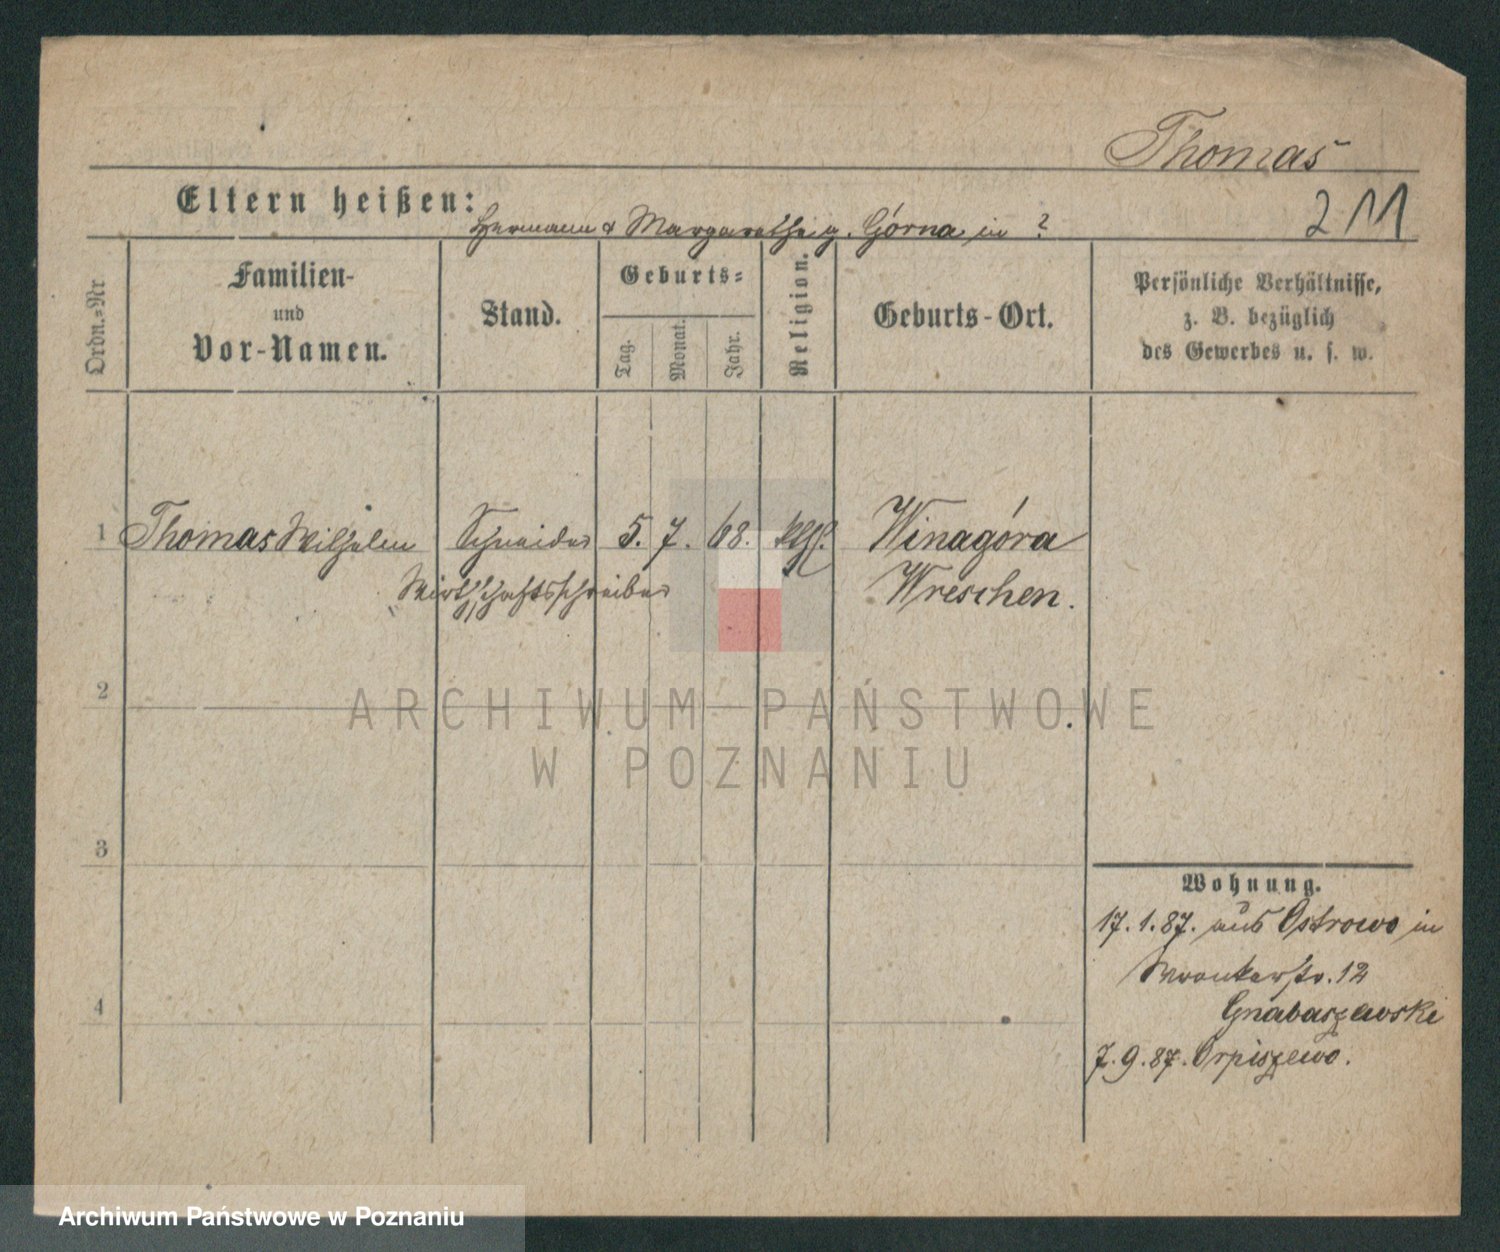 Thomas
Eltern heißen: Hermann & Margarethe g. Górna in ?
211
Ordn.=Nr
Familien- und Vor-Namen.
Stand.
Geburts=
Tag.
Monat.
Jahr.
Religion.
Geburts-Ort.
Persönliche Verhältnisse,
z. B. bezüglich
des Gewerbes u. s. w.
1 Thomas Wilhelm Schneider 5. 7. 68. Winagóra
Wirthschaftsschreiber Wreschen.
2
3
4
Wohnung.
17.1.87. aus Ostrowo in
Wronkerstr. 12
Gnabaszewski
7.9.87. Orpiszewo.
ARCHIWUM PAŃSTWOWE
W POZNANIU
Archiwum Państwowe w Poznaniu